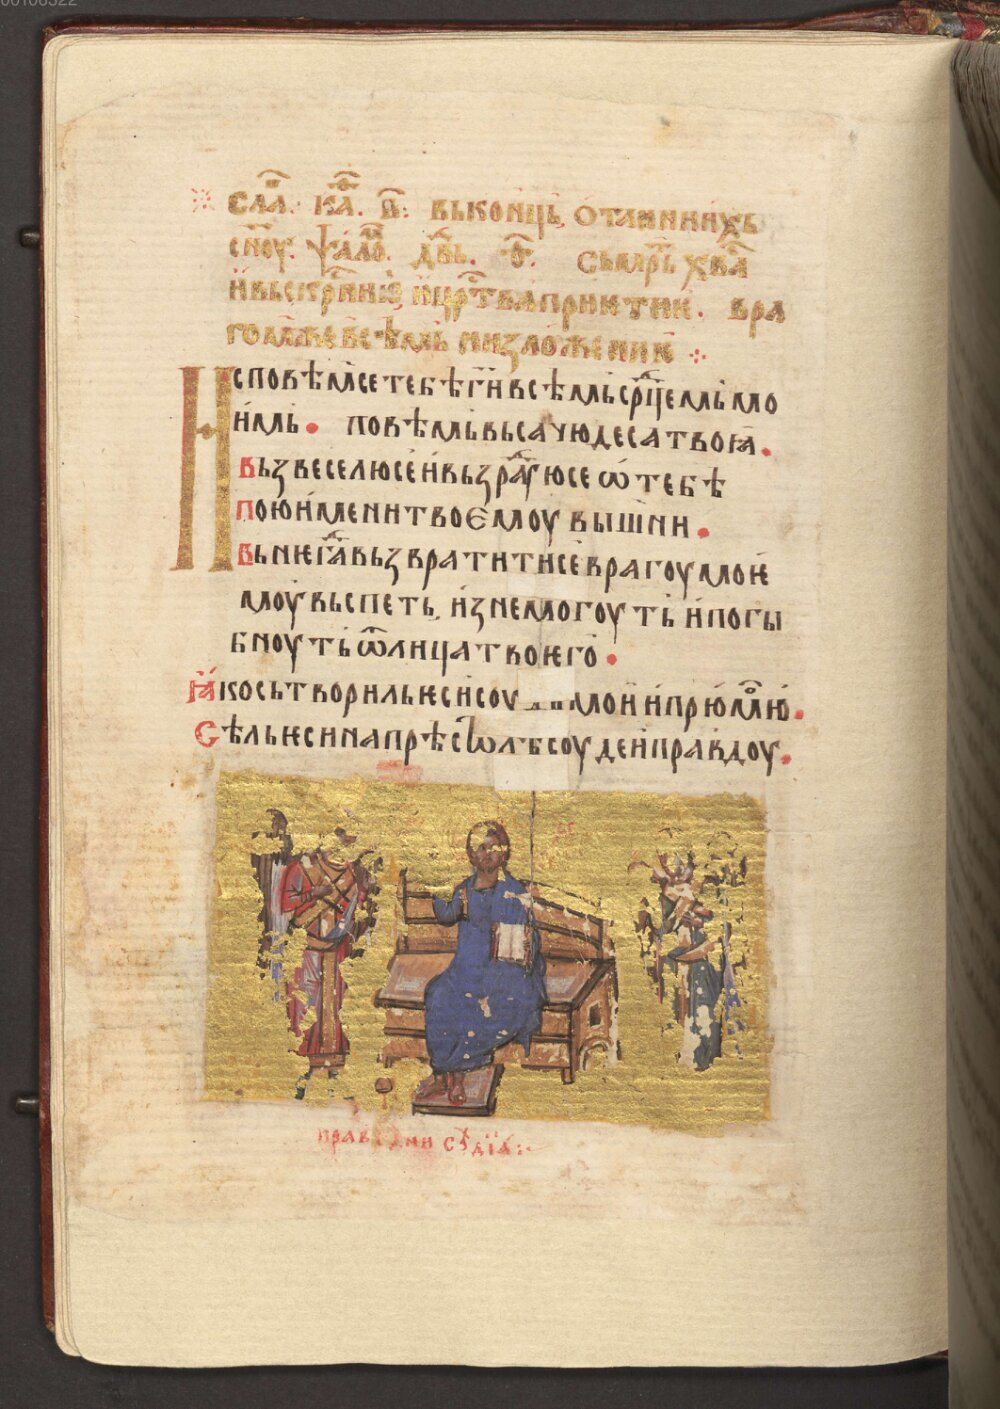 слⷶ҇. каⷴ҇. в҃: вьконць, отаиниихь
сн҃оу: ѱалоⷨ҇. дв҃ь. ѳ҃. сьмрⷮ҇ь хв҃а
ивьскрⷭ҇ниѥ, ицрⷭ҇тваприѥтиѥ. вра
гомжевсѣмь низложениѥ
Исповѣмсетебѣгн҃ивсѣмьср҃цемьмо
имь. повѣмьвьсачюдесатвоꙗ.
вьзвеселюсеивьзраⷣуюсеѡтебѣ
поюименитвоѥмоувышни.
вьнѥгⷣавьзвратитисеврагоумоѥ
моувьспеть, изнемогоуть ипогы
бноутьѿлицатвоѥго.
ꙗкосьтворильѥсисоу моиипрюмою.
сѣльѥсинапрѣстѡлѣсоудеиправдоу.
прав ни сдіа: